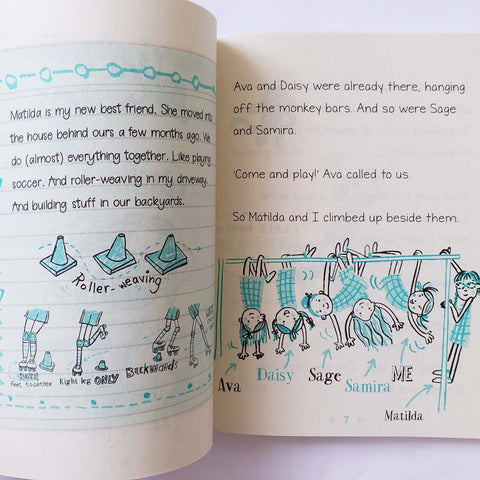 Matilda is my new best friend. She moved into
the house behind ours a few months ago. We
do (almost) everything together. Like playing
soccer. And roller-weaving in my driveway.
And building stuff in our backyards.
Roller-weaving
feet together
Right leg ONLY
BACKWARDS
Ava and Daisy were already there, hanging
off the monkey bars. And so were Sage
and Samira.
'Come and play!' Ava called to us.
So Matilda and I climbed up beside them.
Ava
Daisy
Sage
Samira
ME
Matilda
7